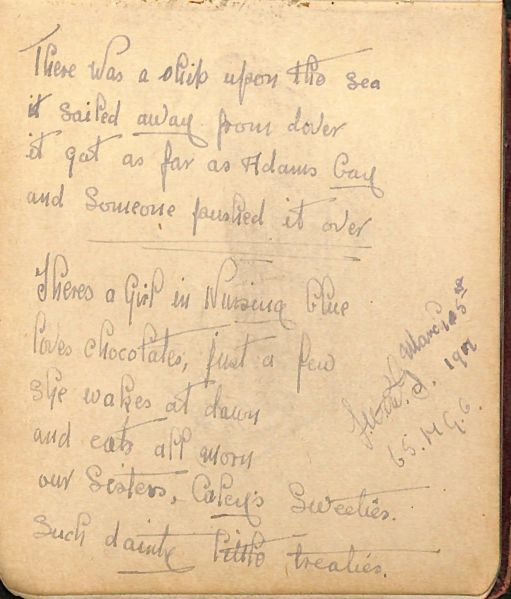 There was a ship upon the sea
it sailed away from dover
it got as far as Adams Bay
and Someone pushed it over
Theres a Girl in Nursing blue
loves chocolates, just a few
She wakes at dawn
and eats all morn
our Sisters, Caley's Sweeties.
Such dainty little treaties.
March 5th
65. M.G.C.